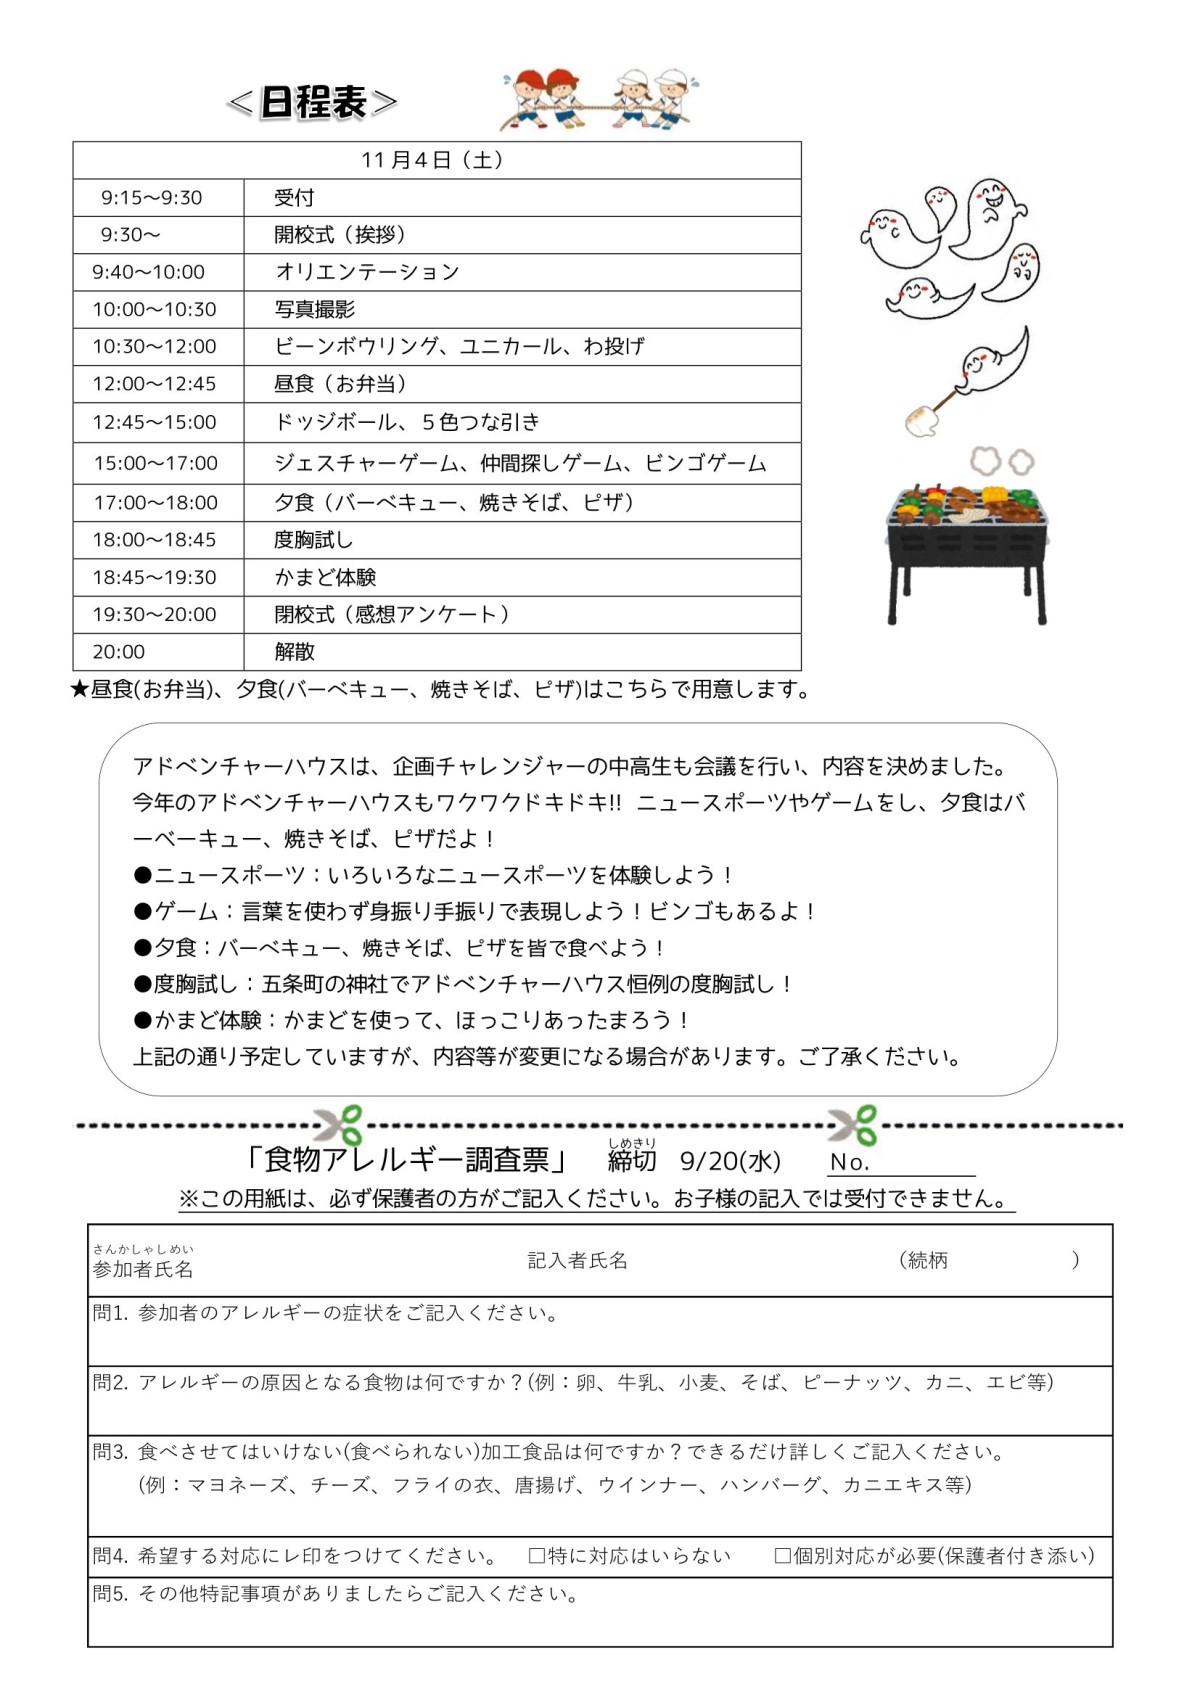 ＜日程表＞
11月4日（土）
9:15～9:30 受付
9:30～ 開校式（挨拶）
9:40～10:00 オリエンテーション
10:00～10:30 写真撮影
10:30～12:00 ビーンボウリング、ユニカール、わ投げ
12:00～12:45 昼食（お弁当）
12:45～15:00 ドッジボール、５色つな引き
15:00～17:00 ジェスチャーゲーム、仲間探しゲーム、ビンゴゲーム
17:00～18:00 夕食（バーベキュー、焼きそば、ピザ）
18:00～18:45 度胸試し
18:45～19:30 かまど体験
19:30～20:00 閉校式（感想アンケート）
20:00 解散
★昼食(お弁当)、夕食(バーベキュー、焼きそば、ピザ)はこちらで用意します。
アドベンチャーハウスは、企画チャレンジャーの中高生も会議を行い、内容を決めました。
今年のアドベンチャーハウスもワクワクドキドキ!! ニュースポーツやゲームをし、夕食はバ
ーベーキュー、焼きそば、ピザだよ！
●ニュースポーツ：いろいろなニュースポーツを体験しよう！
●ゲーム：言葉を使わず身振り手振りで表現しよう！ビンゴもあるよ！
●夕食：バーベキュー、焼きそば、ピザを皆で食べよう！
●度胸試し：五条町の神社でアドベンチャーハウス恒例の度胸試し！
●かまど体験：かまどを使って、ほっこりあったまろう！
上記の通り予定していますが、内容等が変更になる場合があります。ご了承ください。
しめきり
「食物アレルギー調査票」 締切 9/20(水) No.
※この用紙は、必ず保護者の方がご記入ください。お子様の記入では受付できません。
さんかしゃしめい
参加者氏名 記入者氏名 （続柄 ）
問1. 参加者のアレルギーの症状をご記入ください。
問2. アレルギーの原因となる食物は何ですか？(例：卵、牛乳、小麦、そば、ピーナッツ、カニ、エビ等)
問3. 食べさせてはいけない(食べられない)加工食品は何ですか？できるだけ詳しくご記入ください。
(例：マヨネーズ、チーズ、フライの衣、唐揚げ、ウインナー、ハンバーグ、カニエキス等)
問4. 希望する対応にレ印をつけてください。 □特に対応はいらない □個別対応が必要(保護者付き添い)
問5. その他特記事項がありましたらご記入ください。